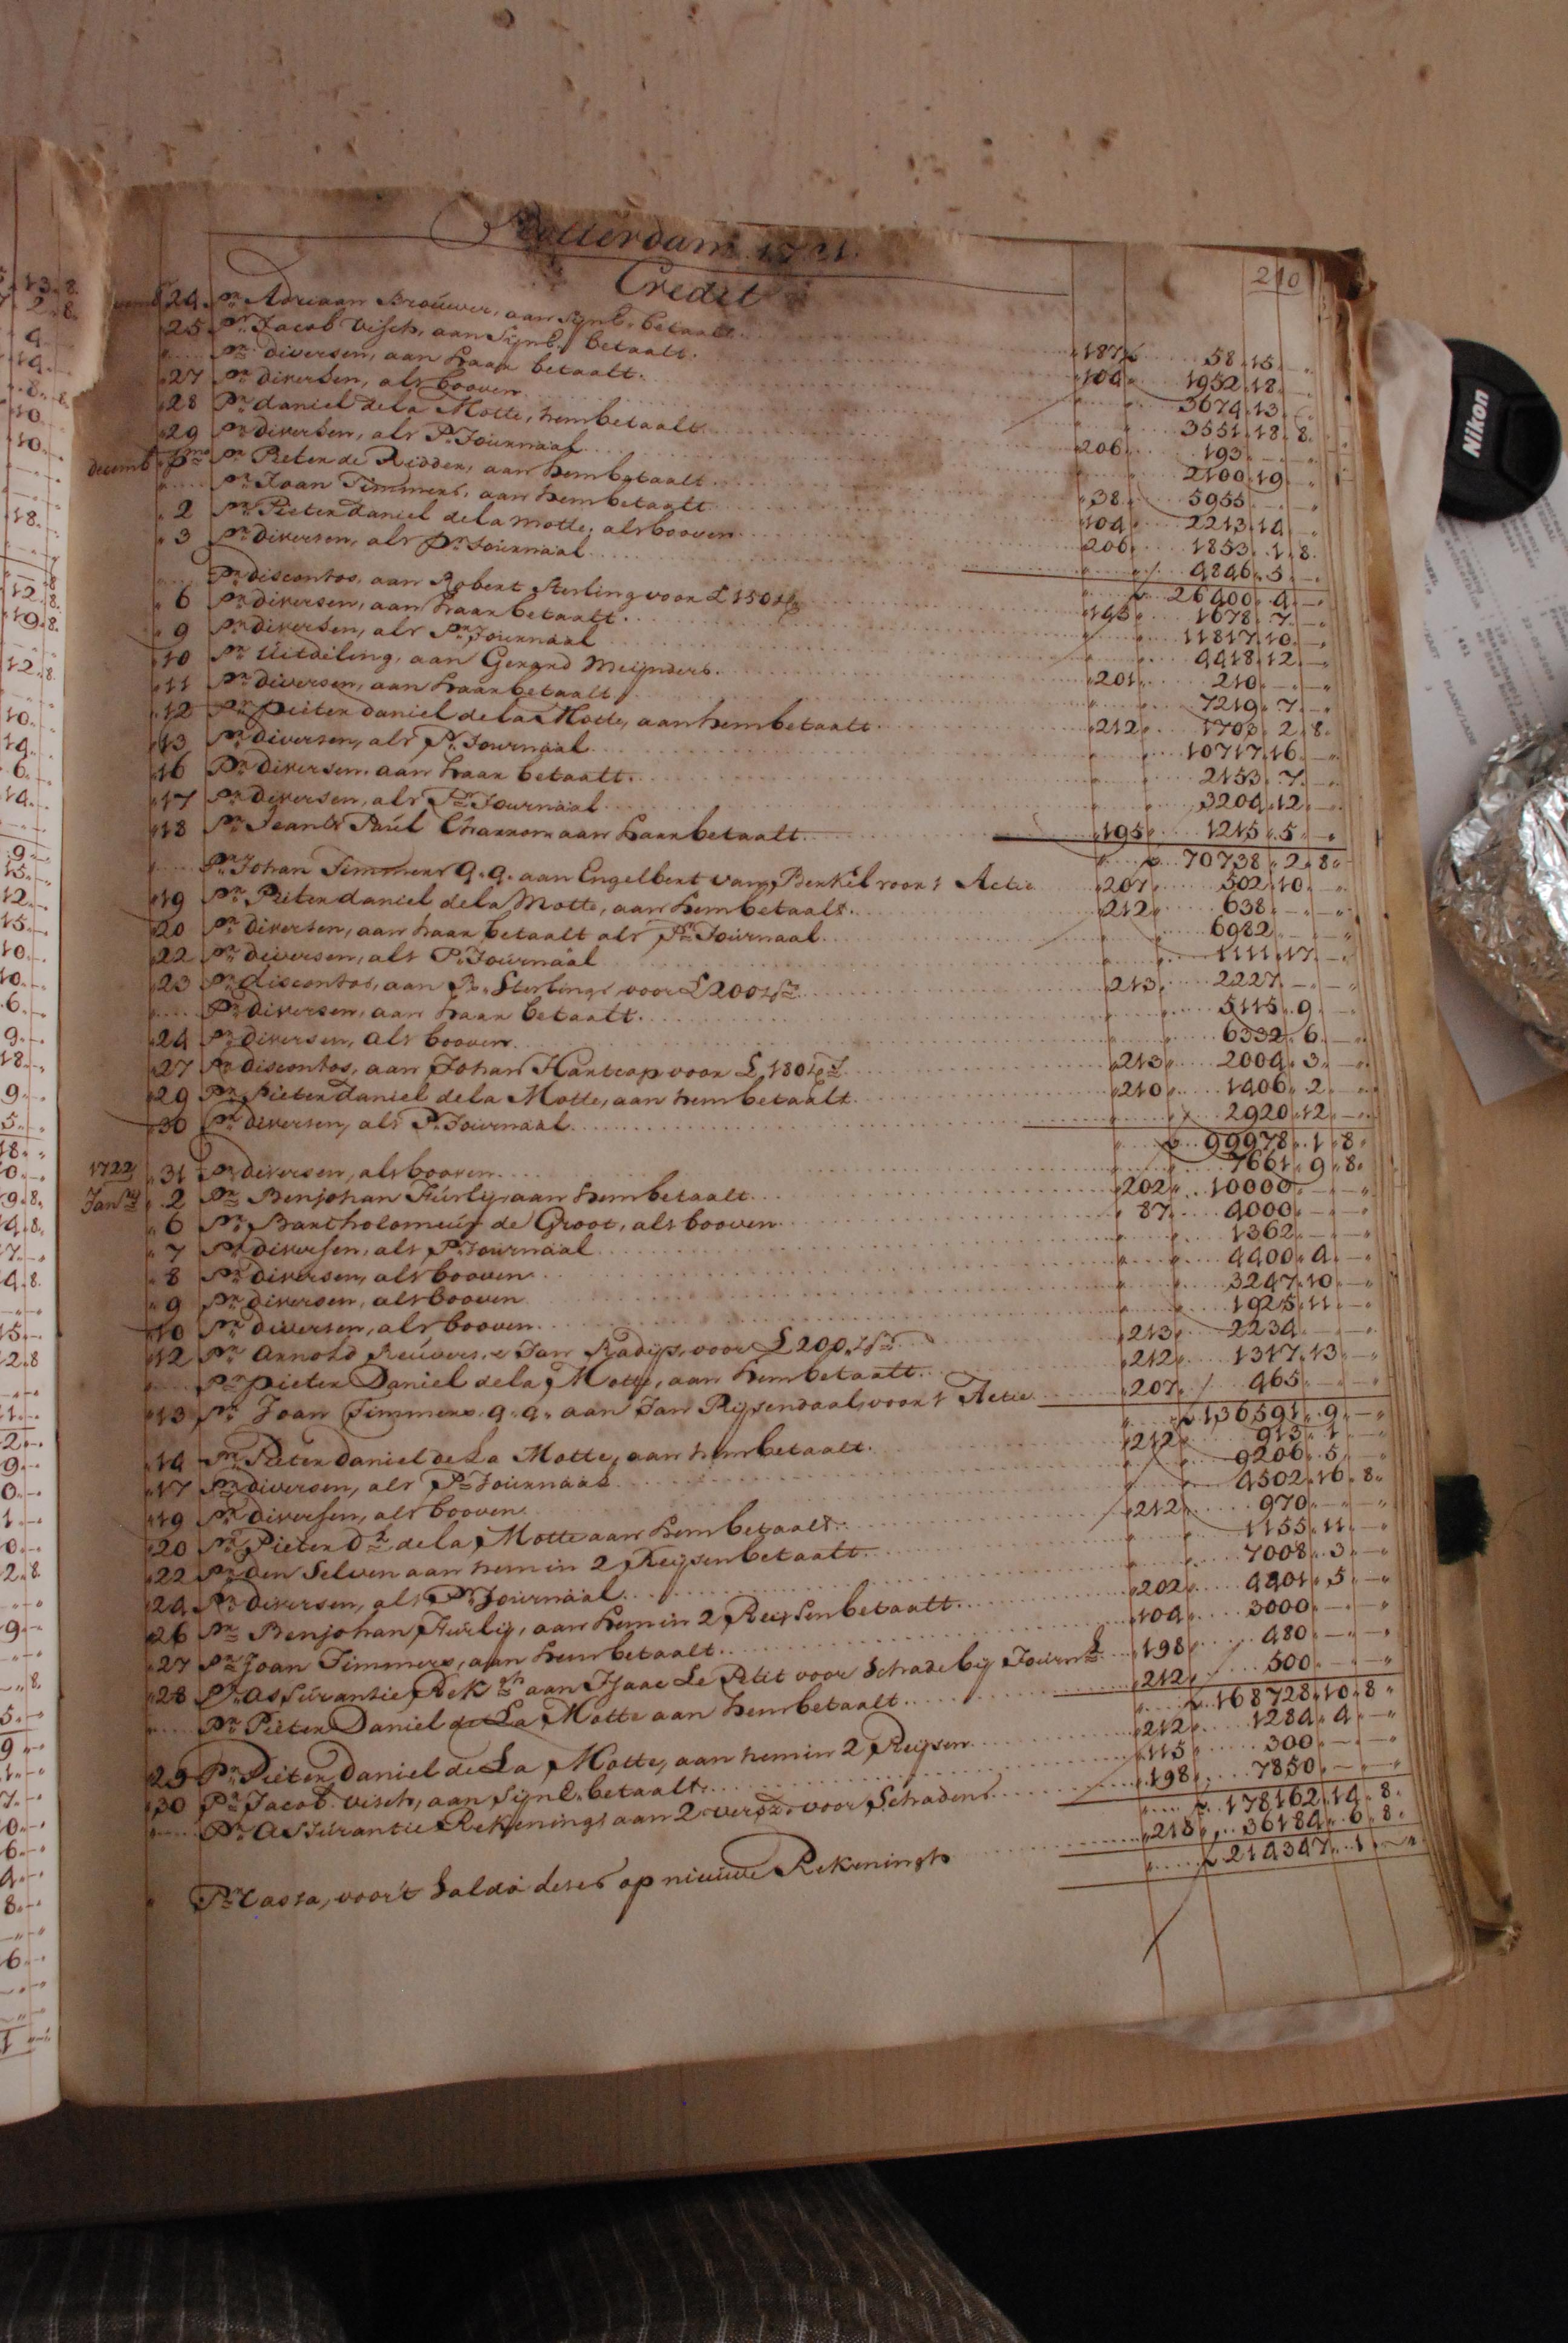 Rotterdam 1721.
Credit
210
24 Pr Adriaan Brouwer, aan Sijn E. betaalt 187 58.15.—
25 Pr Jacob Visch, aan Sijn E. betaalt. 104 1952.18.—
Pr diversen, aan haar betaalt. 3674.13.—
27 Pr diversen, als booven 3551.18.8
28 Pr daniel dela Motte, hem betaalt 206 193.—.—
29 Pr diversen, als Pr Journaal 2100.19.—
decemb pmo Pr Pieter de Ridder, aan hem betaalt 38 5955.—.—
Pr Joan Timmers, aan hem betaalt 104 2213.14.—
2 Pr Pieter daniel dela Motte, als booven 206 1853.1.8
3 Pr diversen, als Pr Journaal 4846.5.—
26400.4.—
Pr discontos, aan Robert Sterling voor £ 150 195 1678.7.—
6 Pr diversen, aan haar betaalt. 11817.10.—
9 Pr diversen, als Pr Journaal 4418.12.—
10 Pr Uitdeiling, aan Gerard Meijnders. 201 210.—.—
11 Pr diversen, aan haar betaalt 7219.7.—
12 Pr Pieter daniel dela Motte, aan hem betaalt 212 1703.2.8
13 Pr diversen, als Pr Journaal 10717.16.—
16 Pr diversen aan haar betaalt. 2153.7.—
17 Pr diversen, als Pr Journaal 3204.12.—
18 Pr Jean & Paul Charron aan haar betaalt 195 1215.5.—
70738.2.8
Pr Johan Timmers q.q. aan Engelbert van Berkel voor 1 Actie 207 502.10.—
19 Pr Pieter daniel dela Motte, aan hem betaalt. 212 638.—.—
20 Pr diversen, aan haar betaalt als Pr Journaal 6982.—.—
22 Pr diversen, als Pr Journaal 1111.17.—
23 Pr discontos, aan R. Sterling, voor £ 200 213 2227.—.—
Pr diversen, aan haar betaalt. 5115.9.—
24 Pr diversen, als booven 6332.6.—
27 Pr discontos, aan Johan Hartcop voor £ 180 213 2004.3.—
29 Pr Pieter daniel dela Motte, aan hem betaalt 210 1406.2.—
30 Pr diversen, als Pr Journaal 2920.12.—
99978.1.8
1722
31 Pr diversen, als booven 7661.9.8
Janry 2 Pr Benjohan Furly, aan hem betaalt 202 10000.—.—
6 Pr Bartholomeus de Groot, als booven 87 4000.—.—
7 Pr diversen, als Pr Journaal 1362.—.—
8 Pr diversen, als booven 4400.4.—
9 Pr diversen, als booven 3247.10.—
10 Pr diversen, als booven 1925.11.—
12 Pr Arnold Reuvers, & Jan Radijs, voor £ 200 213 2234.—.—
Pr Pieter Daniel dela Motte, aan hem betaalt. 212 1317.13.—
13 Pr Joan Timmers q.q. aan Jan Rijsendaal voor 1 Actie 207 465.—.—
136591.9.—
14 Pr Pieter Daniel de La Motte, aan hem betaalt. 212 913.1.—
17 Pr diversen, als Pr Journaal 9206.5.—
19 Pr diversen, als booven 4502.16.8
20 Pr Pieter Dl dela Motte aan hem betaalt 212 970.—.—
22 Pr den Selven aan hem in 2 Reijsen betaalt 1155.11.—
24 Pr diversen, als Pr Journaal 7008.3.—
26 Pr Benjohan Furly, aan hem in 2 Reijsen betaalt 202 4401.5.—
27 Pr Joan Timmers, aan hem betaalt. 104 3000.—.—
28 Pr Assurantie Rek aan Isaac Le Petit voor schade bij Journl 198 480.—.—
Pr Pieter Daniel de La Motte aan hem betaalt 212 500.—.—
168728.10.8
29 Pr Pieter Daniel de La Motte, aan hem in 2 Reijsen 212 1284.4.—
30 Pr Jacob Visch, aan Sijn E. betaalt. 115 300.—.—
Pr Assurantie Rekening aan 2 versz. voor Schaden 198 7850.—.—
178162.14.8
Pr Cassa, voor't Saldo deses op nieuwe Rekeningh 218 36184.6.8
214347.1.—
Nikon